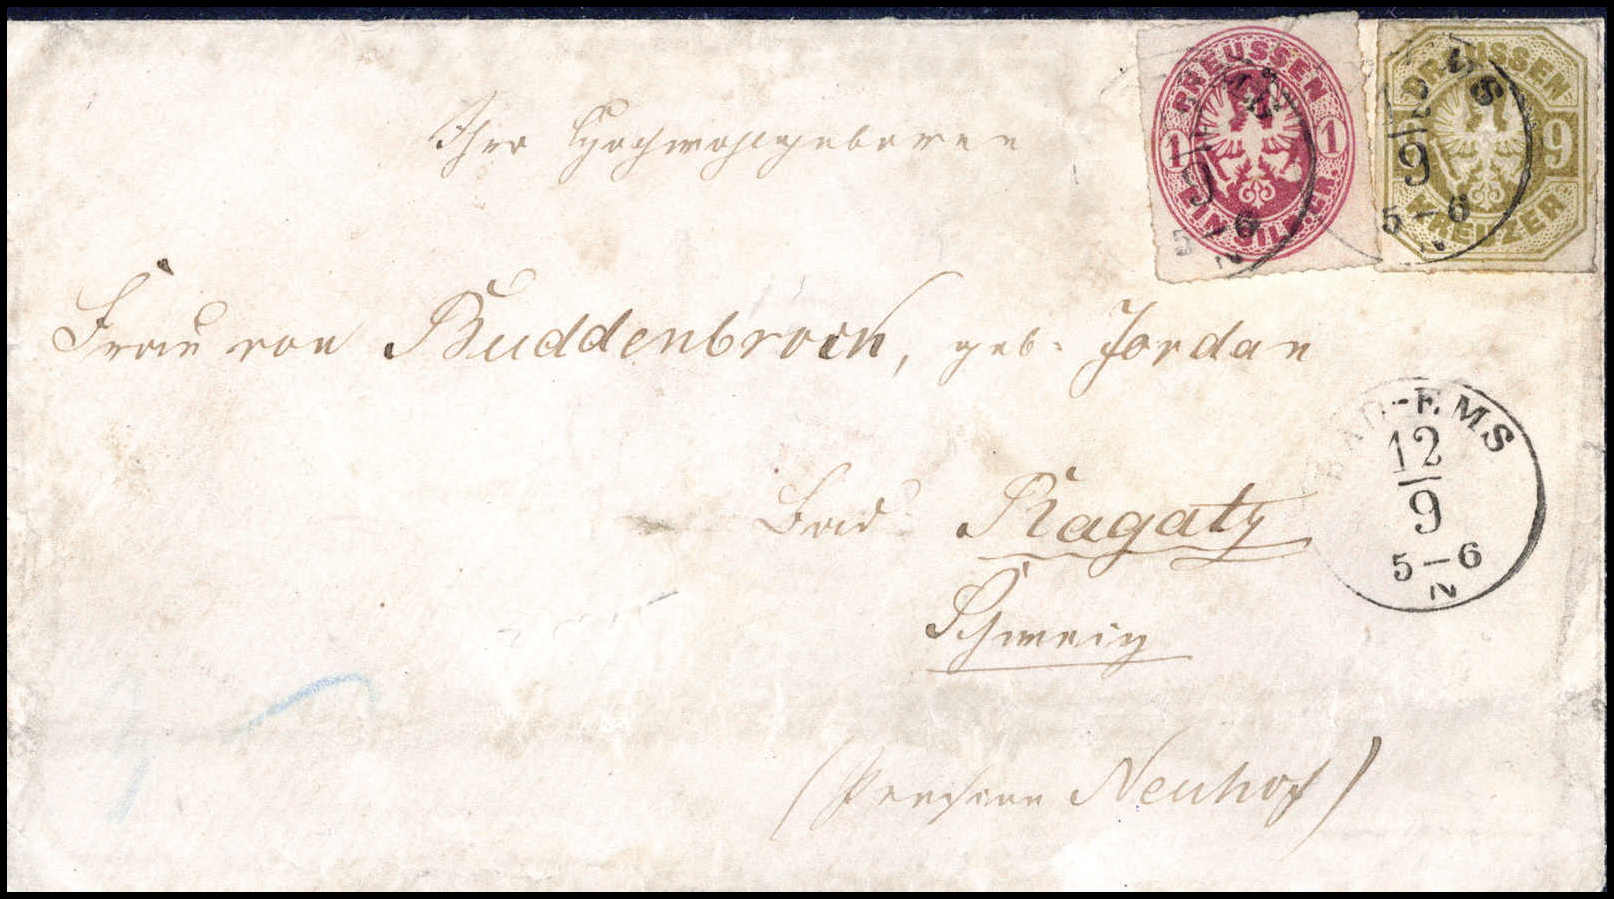 PREUSSEN
1 1
EIN SILB. GR.
PREUSSEN
9
KREUZER
12
9
5-6
N
Ihro Hochwohlgeboren
Frau von Buddenbrock, geb. Jordan
BAD-EMS
12
9
5-6
N
Bad Ragatz
Schweiz
(Pension Neuhof)